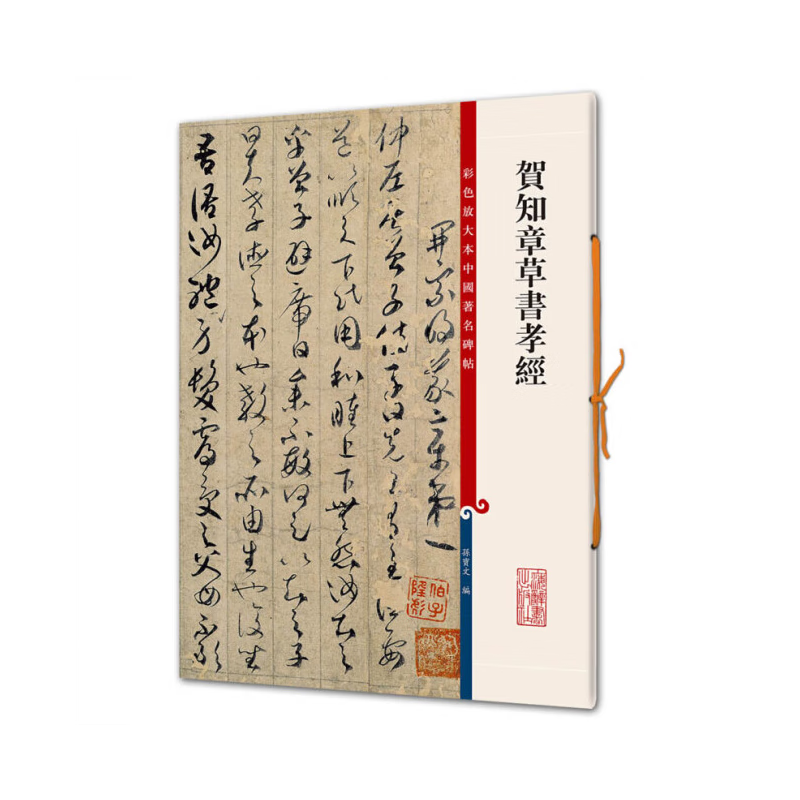 賀知章草書孝經
彩色放大本中國著名碑帖
孫寶文 編
開宗明義章第一
仲尼居曾子侍子曰先王有至德要
道以順天下民用和睦上下無怨汝知之
乎曾子避席曰參不敏何足以知之子
曰夫孝德之本也教之所由生也復坐
吾語汝身體髮膚受之父母不敢